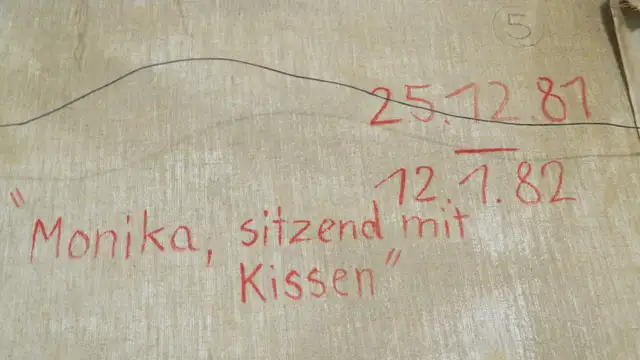 5
25.12.81
—
12.1.82
"Monika, sitzend mit
Kissen"